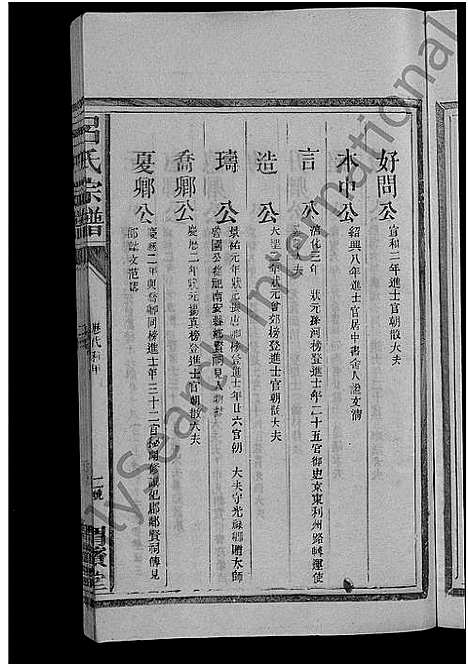 好問公 宣和二年進士官朝散大夫
本中公 紹興八年進士官居中書舍人謚文清
言公 淳化三年 狀元孫河榜登進士年二十五官御史京東利州路轉運使
夫
造公 大聖 年狀元 郊榜登進士官朝散大夫
璹公 景祐元年狀元 唐 榜登進士年廿六官朝 大夫守光祿卿贈大師
國公 祀南安 鄉賢祠見
喬卿公 慶曆二年狀元楊真榜登進士官朝散大夫
夏卿公 慶曆二年與喬卿同榜進士年三十二官秘閣修 祀郡鄉賢祠傳見
郡 文范誌
呂氏宗譜
歷代科甲
渭濱堂
MySearch International